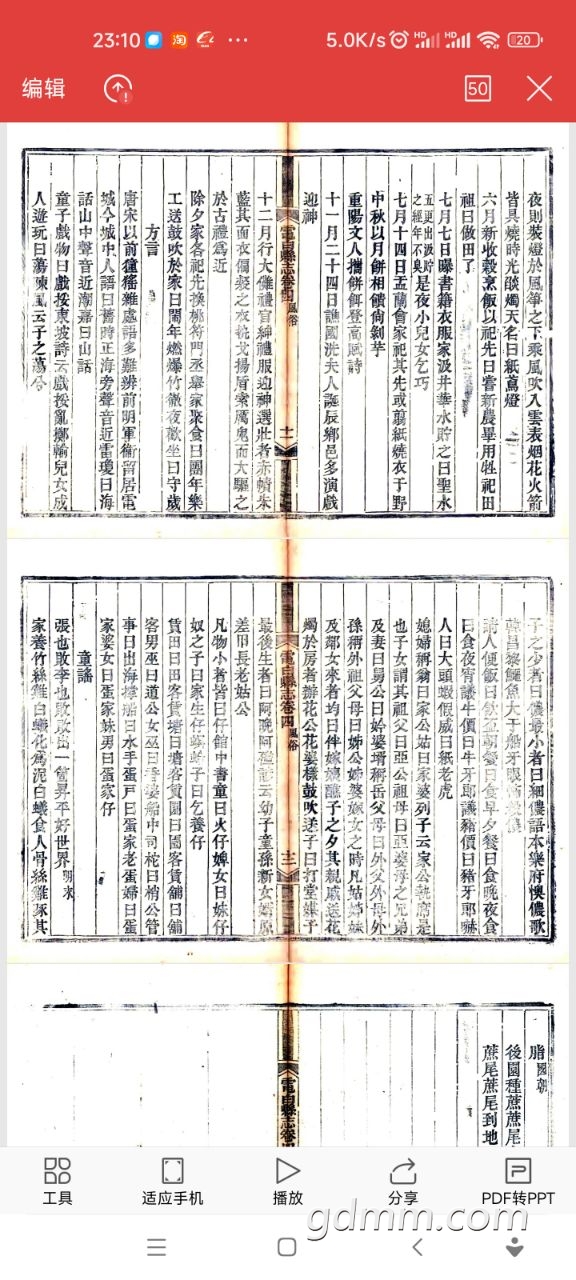 23:10
5.0K/s
HD
HD
20
编辑
50
夜則裝燈於風箏之下乘風吹入雲表烟花火箭
皆具燒時光燄燭天名曰紙鳶燈
六月新收穀烹飯以祀先日嘗新農畢用牲祀田
祖曰做田了
七月七日曝書籍衣服家汲井華水貯之曰聖水
五更出汲貯之經年不臭是夜小兒女乞巧
七月十四日盂蘭會家祀其先或剪紙燒衣于野
中秋以月餅相饋尙剝芋
重陽文人攜餅餌登高賦詩
十一月二十四日譙國洗夫人誕辰鄉邑多演戲
迎神
電白縣志卷四 風俗 十一
十二月行大儺禮官紳禮服迎神選壯者赤幘朱
藍其面衣偶裂之衣執戈揚盾索厲鬼而大驅之
於古禮爲近
除夕家各祀先換桃符門丞舉家聚食曰團年樂
工送鼓吹於家曰鬧年燃爆竹徹夜歡坐曰守歲
方言
唐宋以前獞猺雜處語多難辨前明軍衞留居電
城今城中人語曰舊時正海旁聲音近雷瓊曰海
話山中聲音近潮嘉曰山話
童子戲物曰戲挼東坡詩云戲挼亂擲輸兒女成
人遊玩曰蕩陳風云子之蕩兮
子之少者曰儂最小者曰細儂語本樂府懊儂歌
韓昌黎鱷魚大于船牙眼怖殺儂
請人便飯曰飲盃朝餐曰食早夕餐曰食晚夜食
曰食夜宵議牛價曰牛牙郎議豬價曰豬牙郎嚇
人曰大頭蝦假威曰紙老虎
媳婦稱翁曰家公姑曰家婆列子云家公執席是
也子女謂其祖父曰亞公祖母曰亞婆母之兄弟
及妻曰舅公曰妗婆壻稱岳父母曰外父外母外
孫稱外祖父母曰姊公姊婆嫁女之時凡姑姊妹
及鄰女來者均曰伴嫁娘醮子之夕其親戚送花
燭於房者辦花公花婆樣鼓吹送子曰打堂媒子
電白縣志卷四 風俗 十二
最後生者曰阿晚阿 幼子童孫新女壻原
差旧長老姑公
凡物小者皆曰仔館中書童曰火仔婢女曰妹仔
奴之子曰家生仔螟蛉子曰乞養仔
賃田曰田客賃塘曰塘客賃園曰園客賃舖曰舖
客男巫曰道公女巫曰 婆船中司柁曰梢公管
事曰出海撐船曰水手蛋戸曰蛋家老蛋婦曰蛋
家婆女曰蛋家妹男曰蛋家仔
童謠
張也敗李也敗敗出一箇昇平好世界 明末
家養竹絲雞白蟻化爲泥白蟻食人骨絲雞啄其
脂 國朝
後園種蔗蔗尾
蔗尾蔗尾到地
電白縣志卷
工具
适应手机
播放
分享
PDF转PPT
gdmm.com